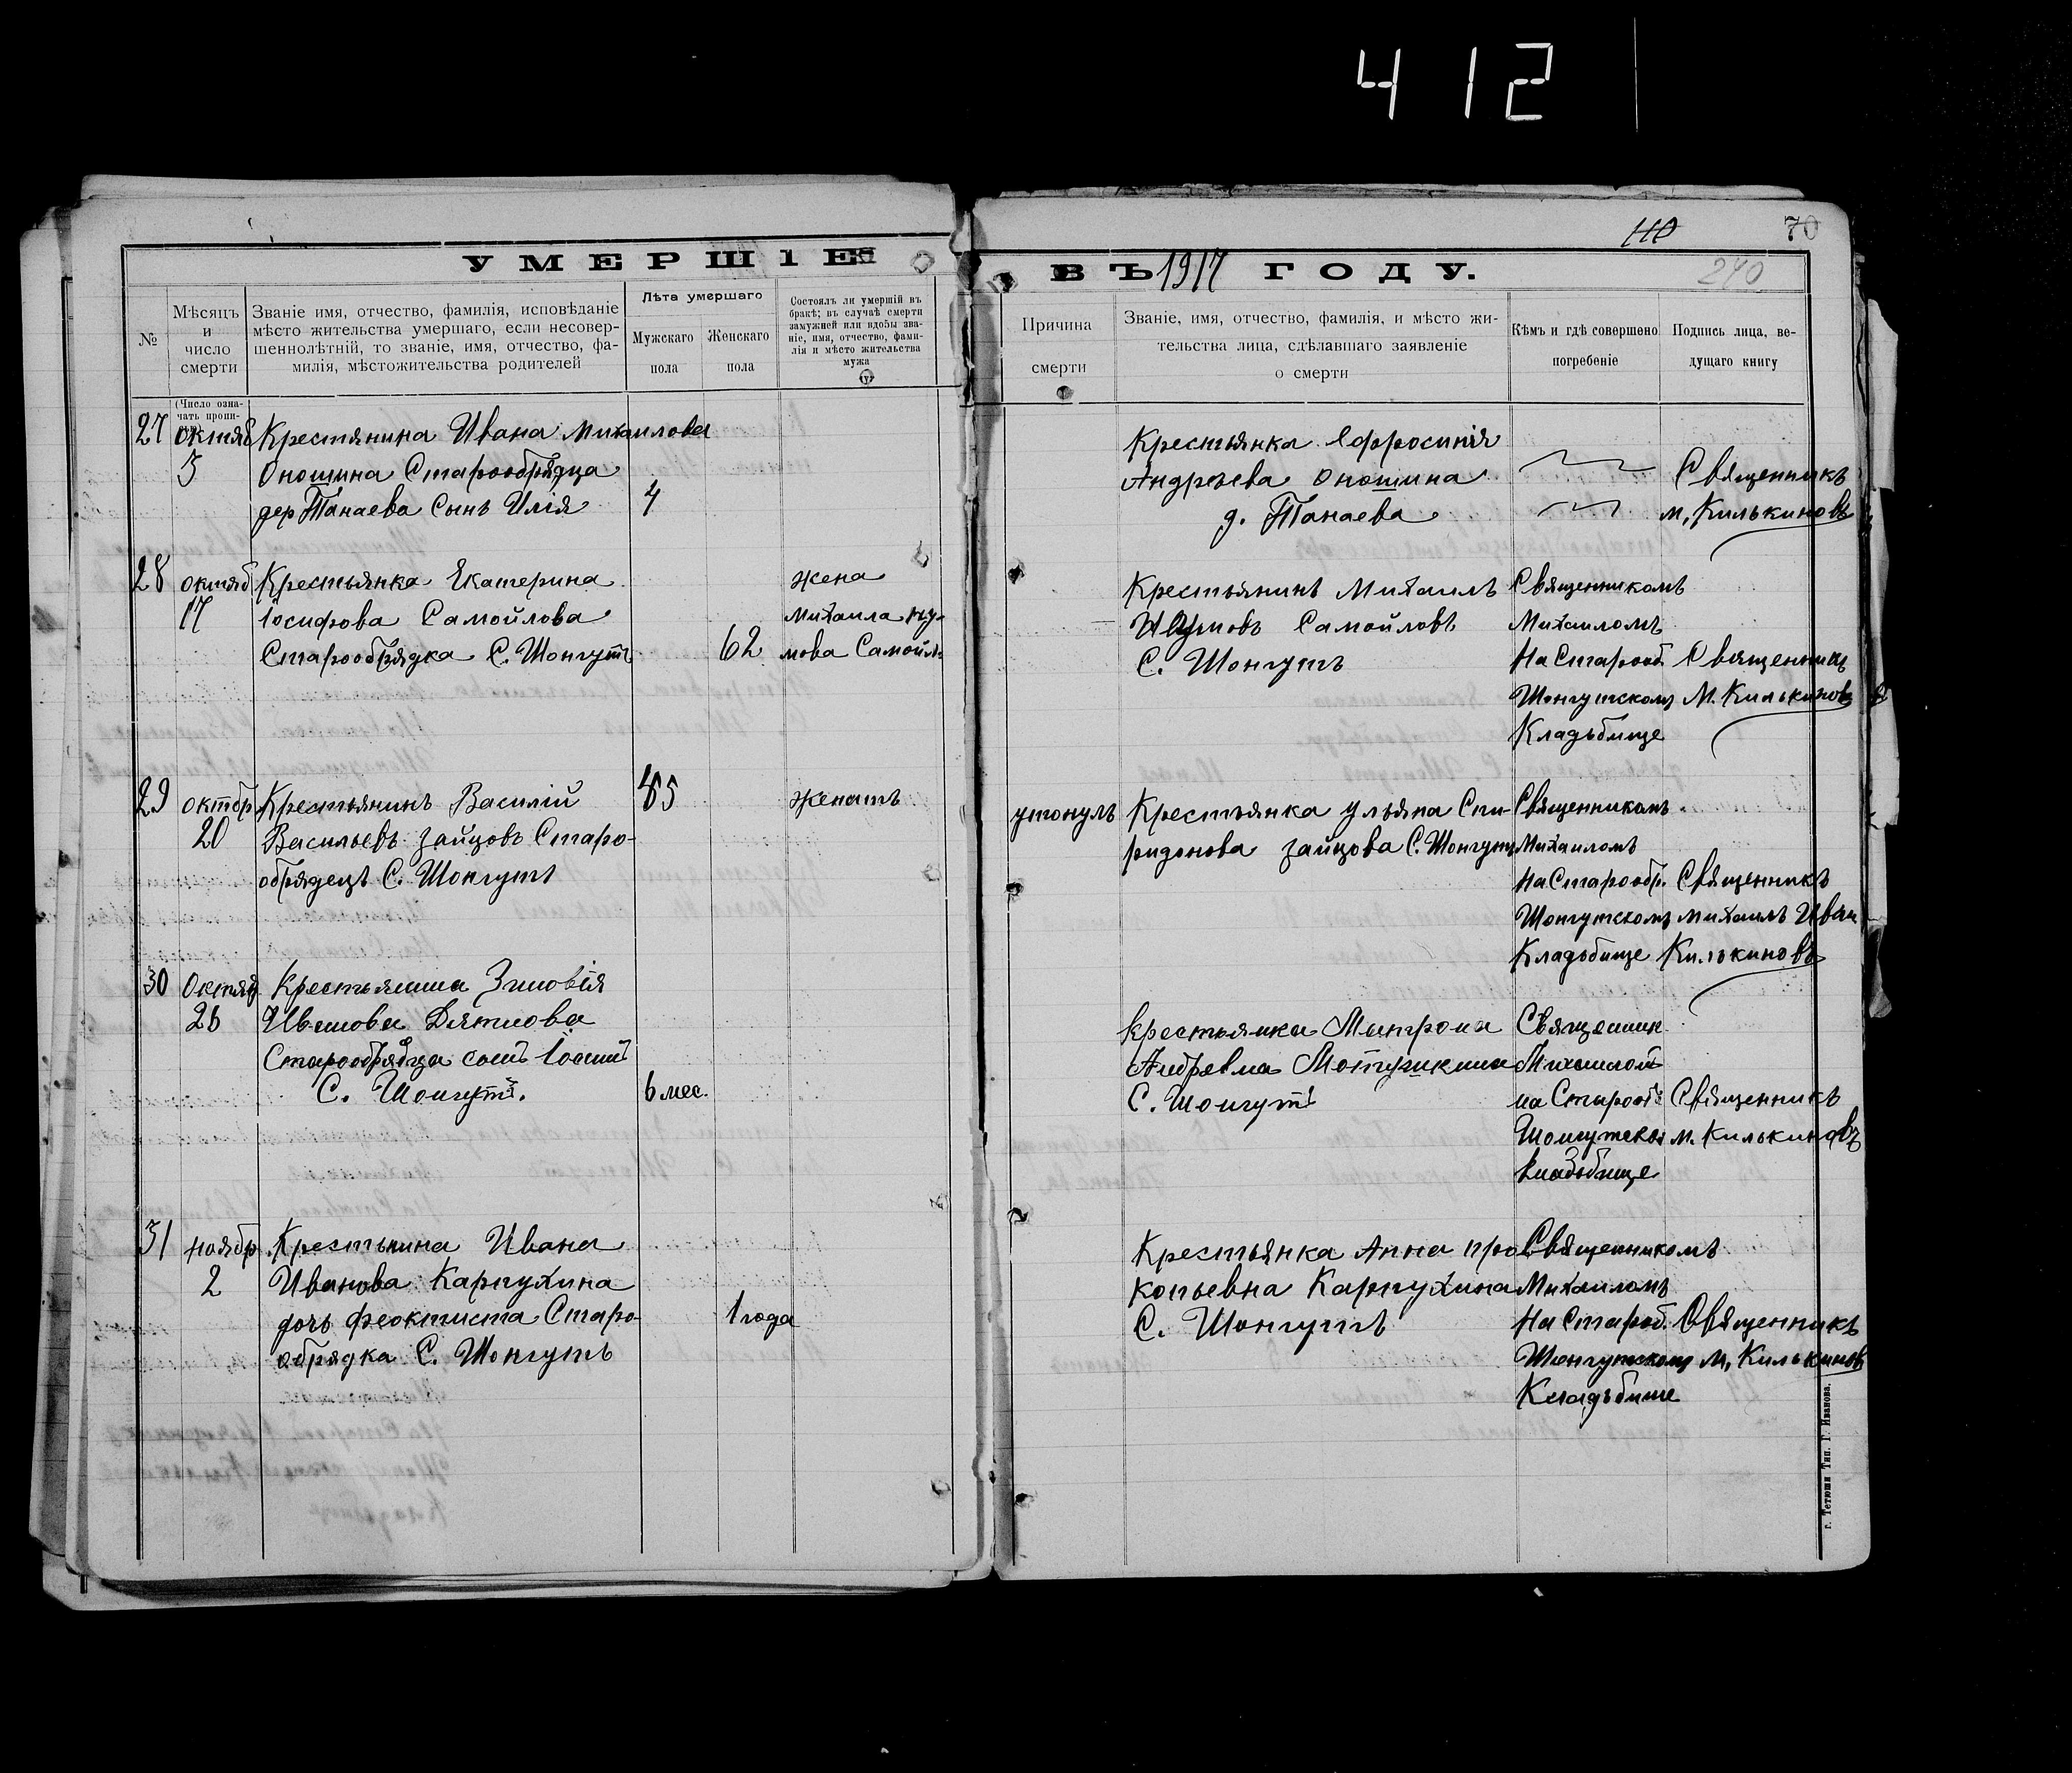 412
110
70
240
УМЕРШІЕ
ВЪ 1917 ГОДУ.
№
Мѣсяцъ
и
число
смерти
(Число озна-
чать пропи-
Званіе имя, отчество, фамилія, исповѣданіе
мѣсто жительства умершаго, если несовер-
шеннолѣтній, то званіе, имя, отчество, фа-
милія, мѣстожительства родителей
Лѣта умершаго
Мужскаго
пола
Женскаго
пола
Состоялъ ли умершій въ
бракѣ; въ случаѣ смерти
замужней или вдовы зва-
ніе, имя, отчество, фами-
лія и мѣсто жительства
мужа
Причина
смерти
Званіе, имя, отчество, фамилія, и мѣсто жи-
тельства лица, сдѣлавшаго заявленіе
о смерти
Кѣмъ и гдѣ совершено
погребеніе
Подпись лица, ве-
дущаго книгу
27
октяб
3
Крестянина Ивана Михаилова
Оношина Старообрядца
дер Танаева Сынъ Илія
4
Крестьянка Ефросинія
Андреева Оношина
д. Танаева
Священникъ
М. Килькиновъ
28
октяб
17
Крестьянка Екатерина
Іосифова Самойлова
Старообрядка С. Шонгутъ
62
жена
Михаила
мова Самойл
Крестьянинъ Михаилъ
Самойловъ
С. Шонгутъ
Священникомъ
Михаиломъ
На Старооб
Шонгутскомъ
Кладьбище
Священникъ
М. Килькиновъ
29
октбр
20
Крестьянинъ Василій
Васильевъ Зайцовъ Старо-
обрядецъ С. Шонгутъ
45
женатъ
утонулъ
Крестьянка Ульяна Спи-
ридонова Зайцова С. Шонгутъ
Священникомъ
Михаиломъ
На Старообр.
Шонгутскомъ
Кладьбище
Священникъ
Михаилъ Иван
Килькиновъ
30
Октяб
26
Крестьянина Зиновія
Иванова Дятлова
Старообрядца сынъ
С. Шонгутъ.
6 мес.
крестьянка
С. Шонгутъ
Священник
Михаилом
на Старооб
Шонгутском
кладьбище
Священникъ
М. Килькиновъ
31
ноябр
2
Крестьнина Ивана
Иванова Карпухина
дочь Феоктиста Старо-
обрядка С. Шонгутъ
1 года
Крестьянка Анна Про
копьевна Карпухина
С. Шонгутъ
Священникомъ
Михаиломъ
На Староб.
Шонгутскомъ
Кладьбише
Священникъ
М. Килькиновъ
г. Тетюши Тип. Г. Иванова.